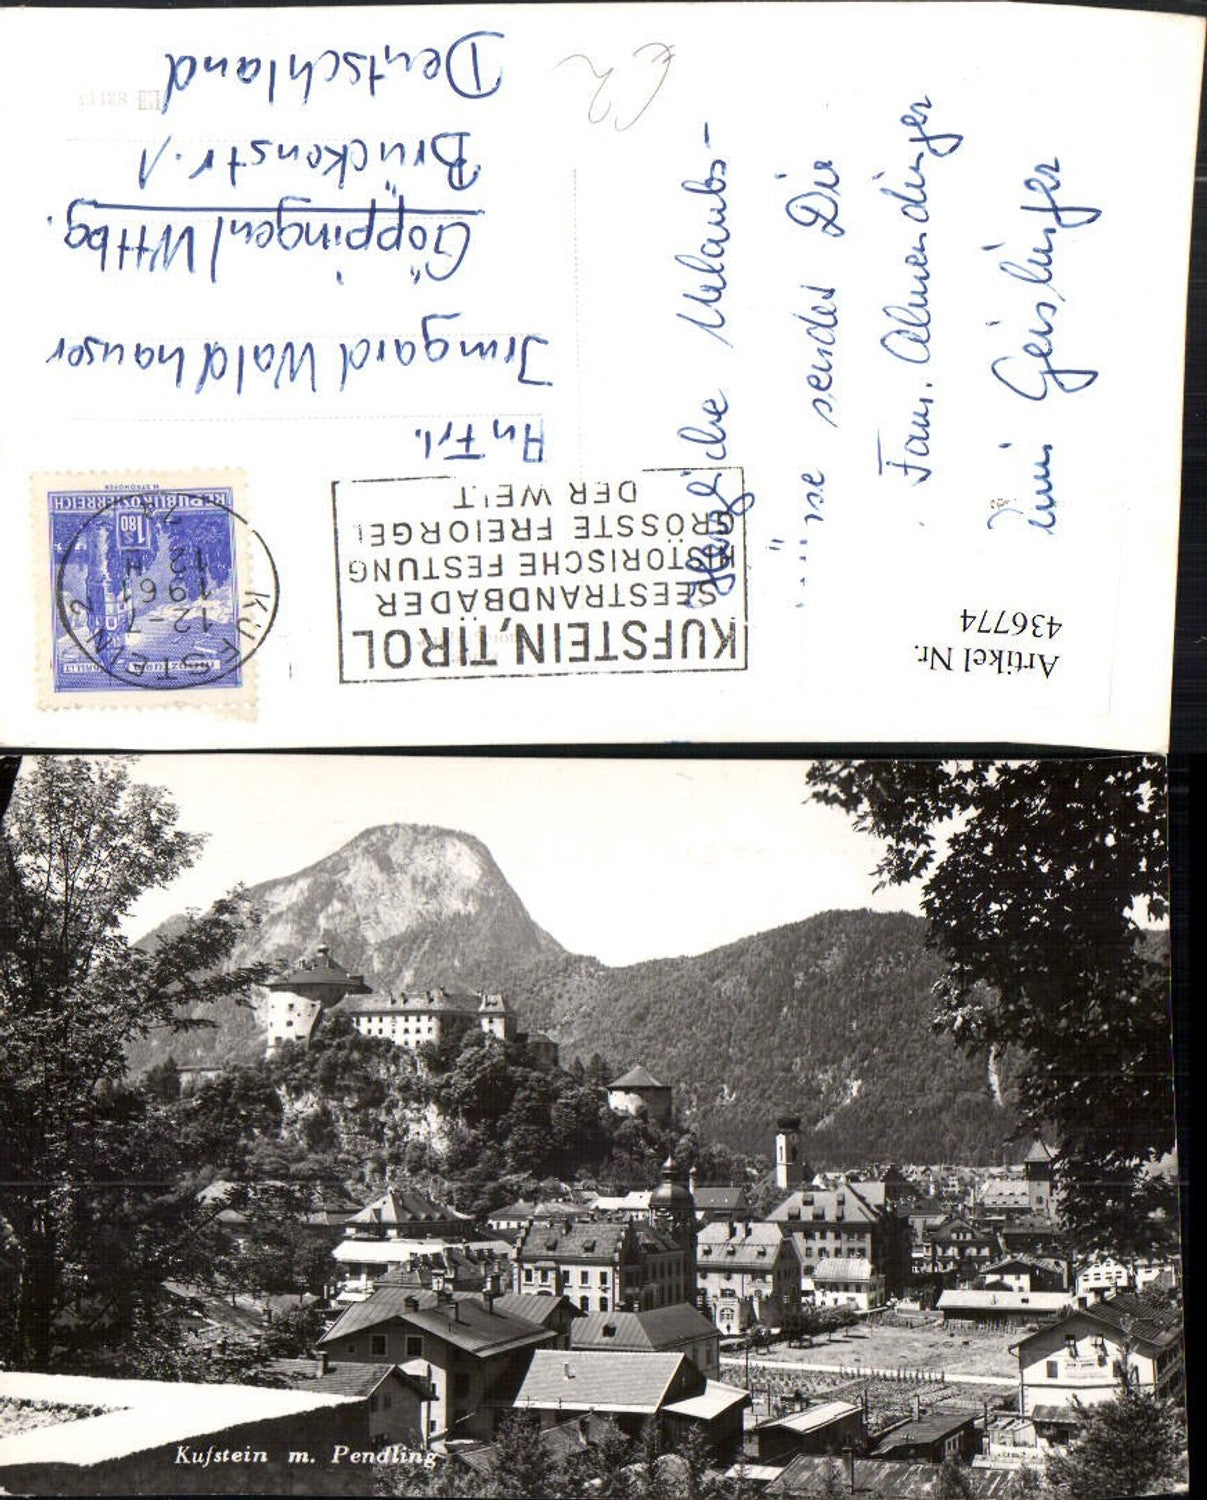 Herzliche Urlaubs-
sendet Dir
Fam. Allmendinger
Geislinger
An Frl.
Irmgard Waldhauser
Göppingen/Wttbg.
Brückenstr. 1
Deutschland
KUFSTEIN, TIROL
SEESTRANDBÄDER
HISTORISCHE FESTUNG
GRÖSSTE FREIORGEL
DER WELT
KUFSTEIN 2
12-7
1961
12
REPUBLIK ÖSTERREICH
180
Artikel Nr.
436774
Kufstein m. Pendling